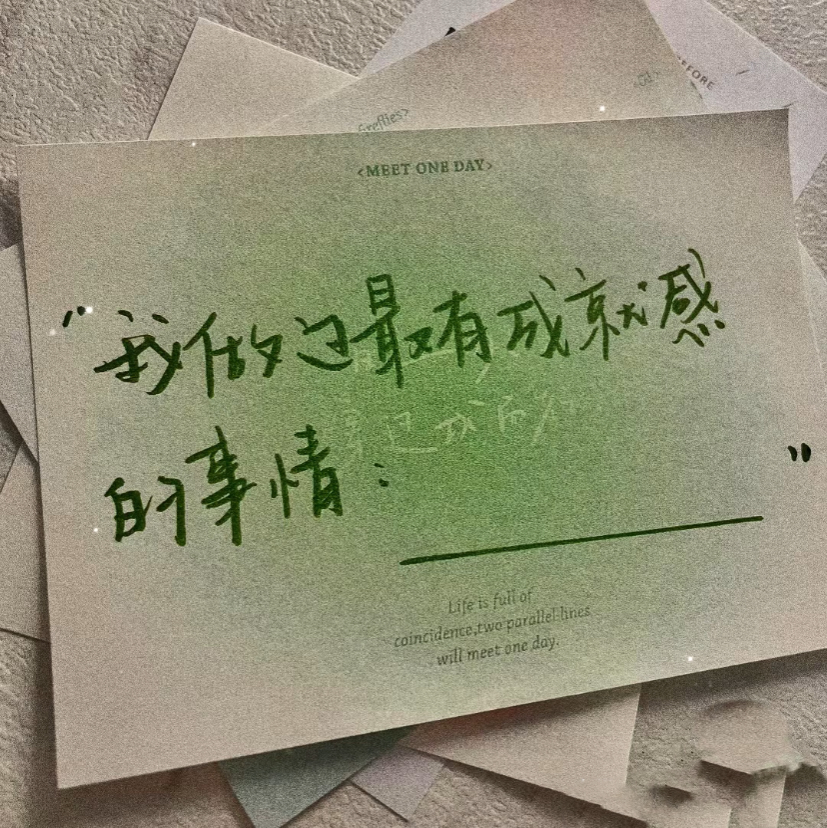 EFORE
fireflies>
<MEET ONE DAY>
“我做过最有成就感
的事情：”
Life is full of
coincidence,two parallel lines
will meet one day.